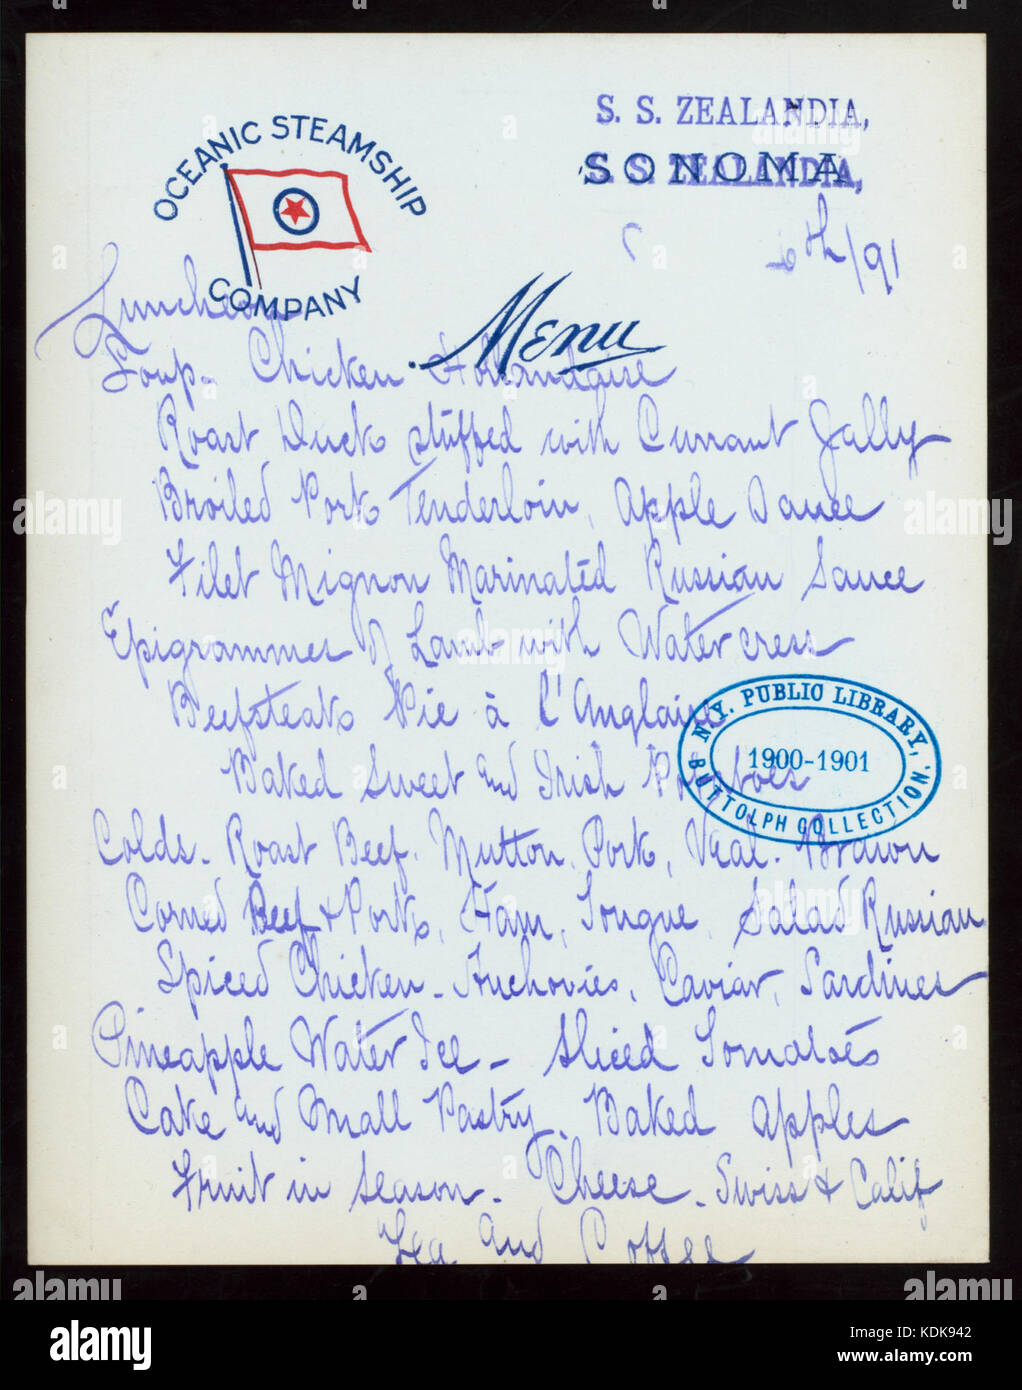 OCEANIC STEAMSHIP
COMPANY
S. S. ZEALANDIA,
SONOMA
S. S. ZEALANDIA,
6th/91
Menu
Luncheon
Soup. Chicken Hollandaise
Roast Duck stuffed with Currant Jelly
Broiled Pork Tenderloin, Apple Sauce
Filet Mignon Marinated Russian Sauce
Epigrammes of Lamb with Water cress
Beefsteak Pie à l'Anglaise
Baked Sweet and Irish Potatoes
Colds. Roast Beef. Mutton. Pork, Veal. Brawn
Corned Beef & Pork, Ham, Tongue, Salad Russian
Spiced Chicken. Anchovies, Caviar, Sardines
Pineapple Water Ice - Sliced Tomatoes
Cake and Small Pastry. Baked Apples
Fruit in Season. Cheese. Swiss & Calif
Tea and Coffee
N.Y. PUBLIC LIBRARY,
1900-1901
BUTTOLPH COLLECTION.
alamy
alamy
Image ID: KDK942
www.alamy.com